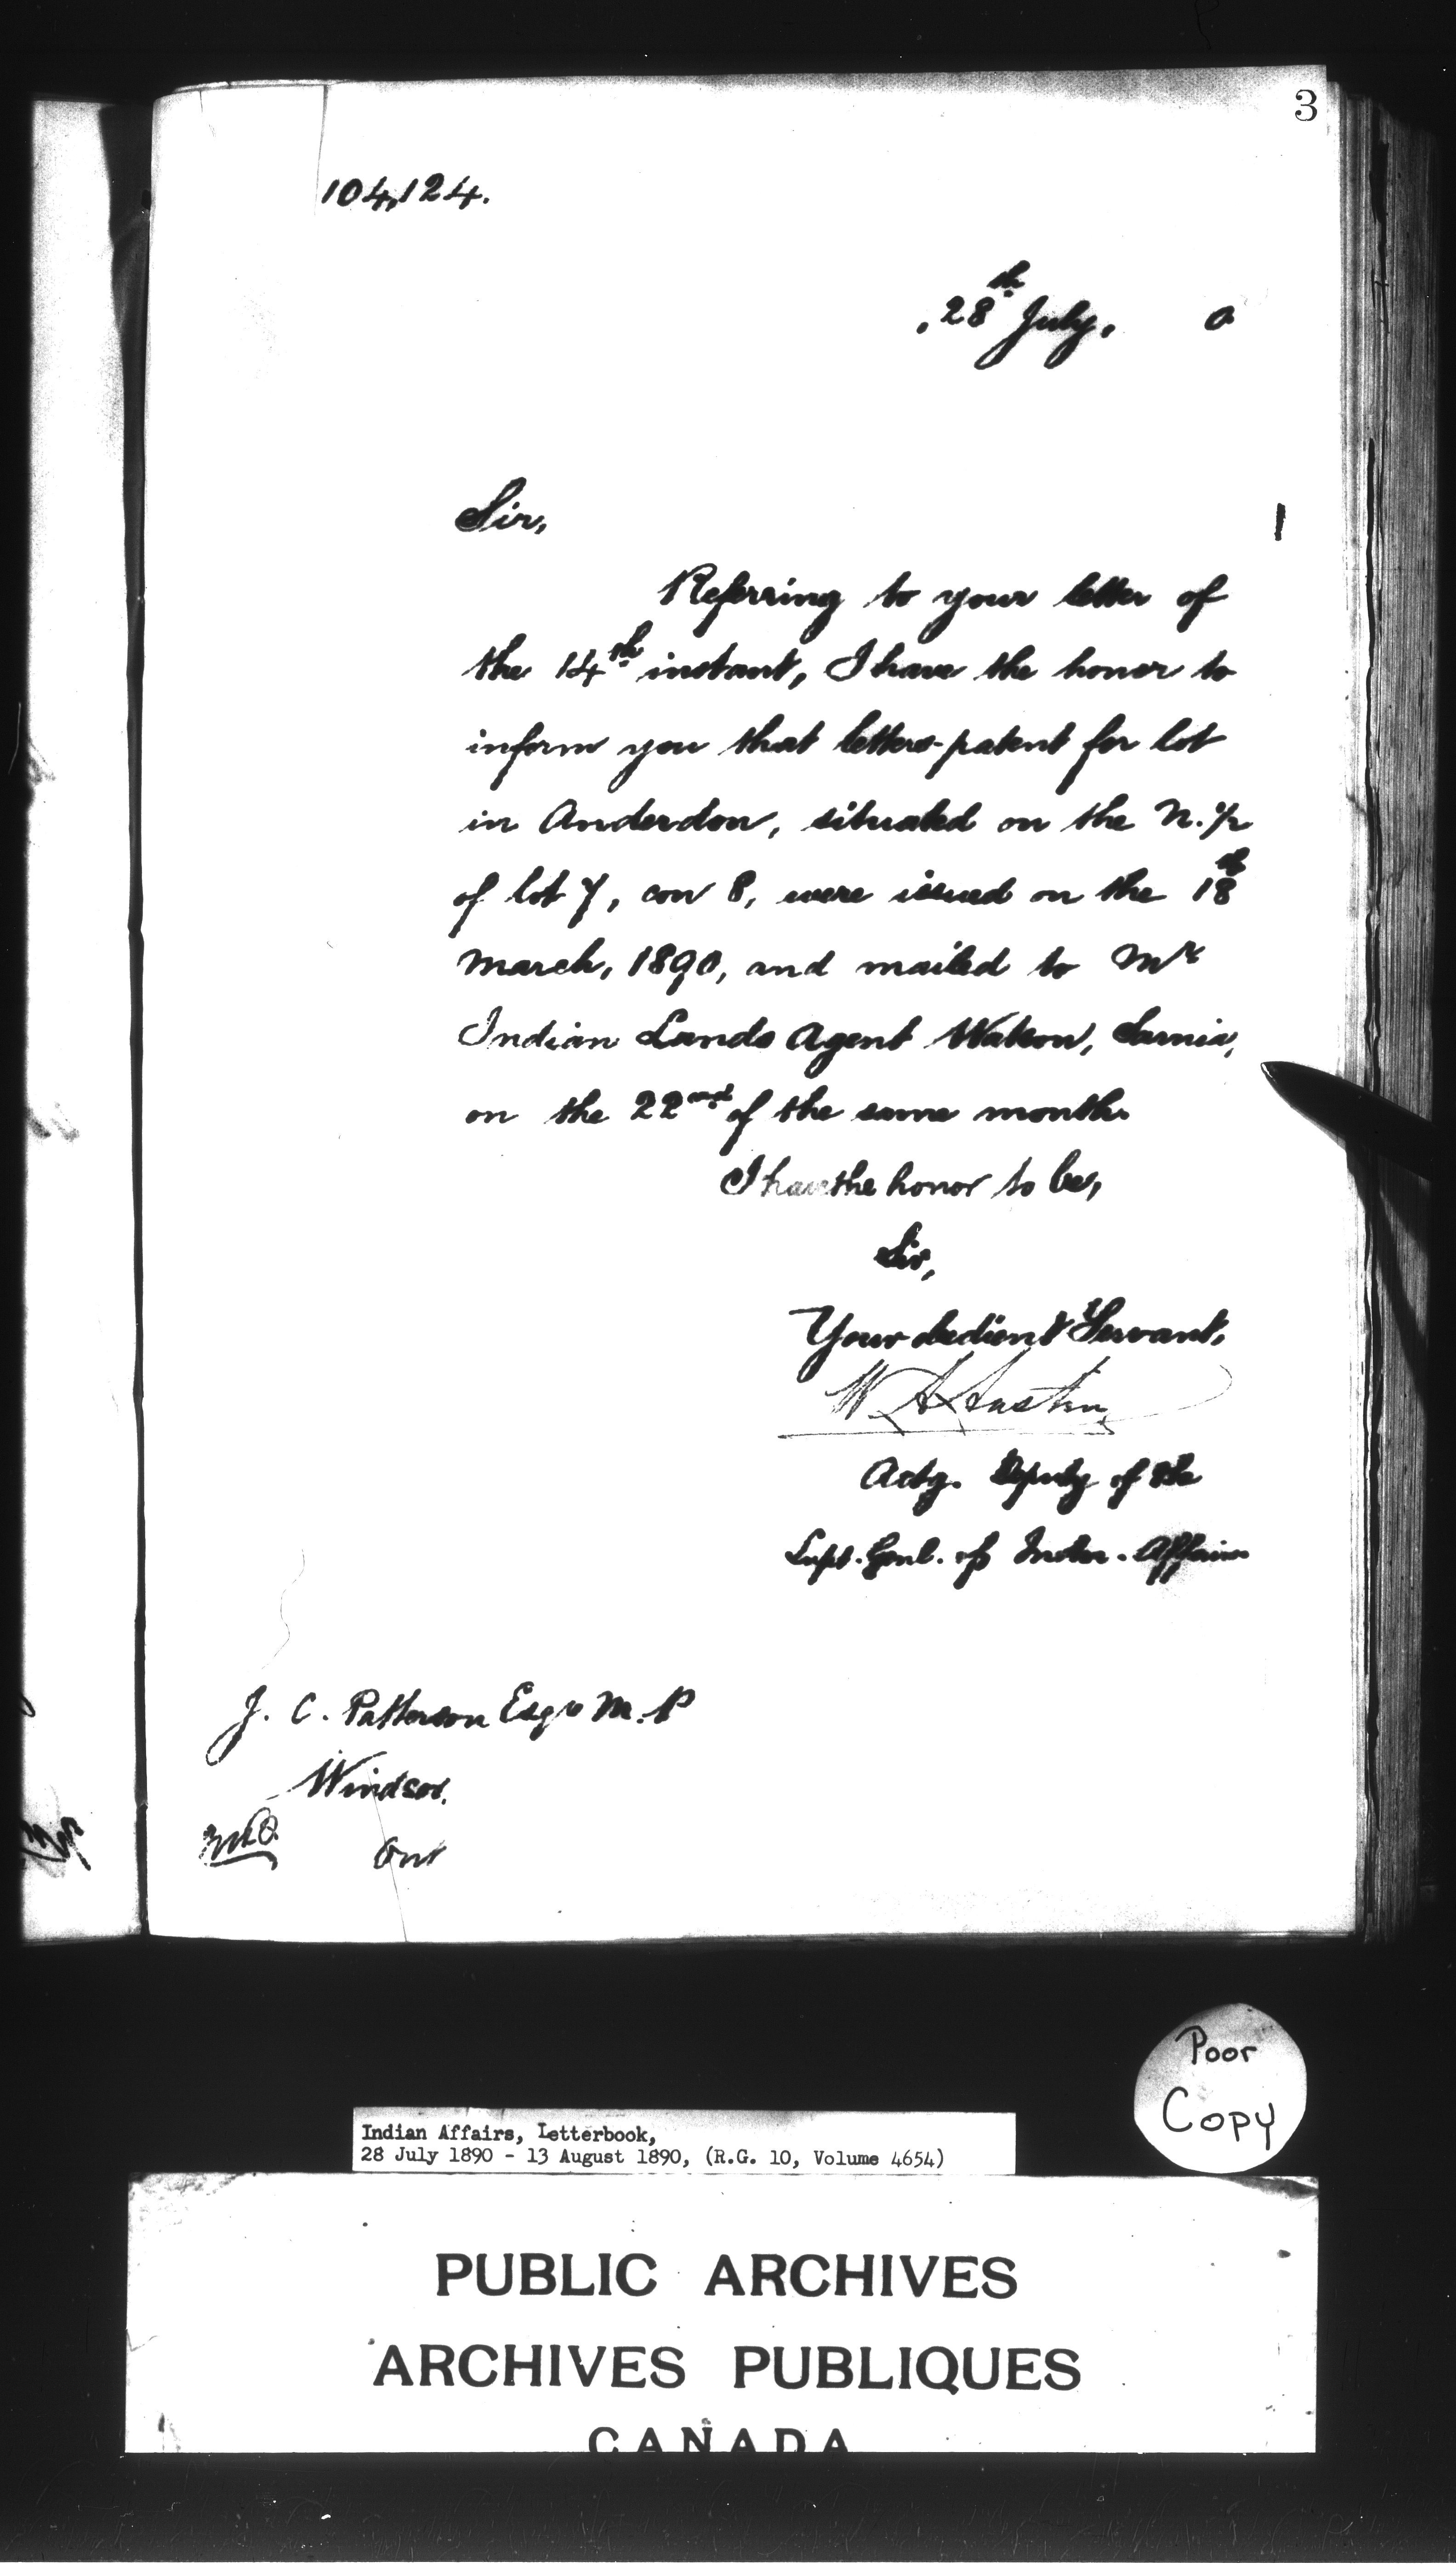 3
104,124.
28th July, 0
Sir,
Referring to your letter of
the 14th instant, I have the honor to
inform you that letters-patent for lot
in Anderdon, situated on the N. 1/2
of lot 7, con 8, were issued on the 18th
March, 1890, and mailed to Mr
Indian Lands Agent Watson, Sarnia,
on the 22nd of the same month.
I have the honor to be,
Sir,
Your obedient Servant,
W A Austin
Actg. Deputy of the
Supt. Genl. of Indn. Affairs
J. C. Patterson Esqre M.P
Windsor.
Ont
Poor
Copy
Indian Affairs, Letterbook,
28 July 1890 - 13 August 1890, (R.G. 10, Volume 4654)
PUBLIC ARCHIVES
ARCHIVES PUBLIQUES
CANADA